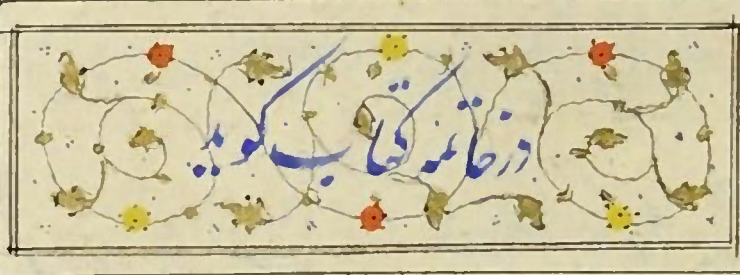 در خاتمهٔ کتاب کوید